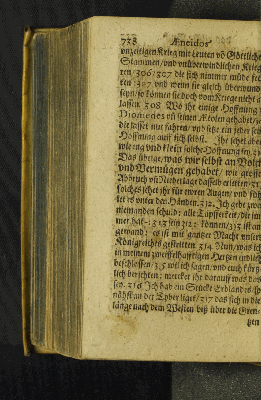 738 Æneidos
unzeitigen Krieg mit Leuten võ Göttliche
Stammen / und unüberwindlichen Krieg
ren / 306 / 307 die sich nimmer müde
ten / 307 und wenn sie gleich überwund
seyn / so können sie doch vom Kriege nicht a
lassen. 308 Wo ihr einige Hoffnung
Diomedes uñ seinen Ætolen gehabt /
die lasset nur fahren / uñ setze ein jeder sein
Hoffnung auff sich selbst. Ihr sehet aber
wie eng und klein solche Hoffnung sey.
Das übrige / was wir selbst an Volck
und Vermögen gehabt / wie grosse
Abbruch uñ Niederlage dasselb erlitten /
solches sehet ihr für ewren Augen / und
let es unter den Händen. 312. Ich gebe zwar
niemanden schuld: alle Tapfferkeit / die im
mer hat 313 seyn können / 313 ist an
gewand: es ist mit gantzer Macht unsers
Königreiches gestritten 314 Nun / was ich
in meinem zweiffelhafftigen Hertzen endlich
beschlossen / 315 wil ich sagen / und euch kürtz-
lich berichten: mercket ihr darauff was das
sey. 316 Ich hab ein Stücke Erblandes
nähst an der Tyber liget / 317 das sich in die
länge nach dem Westen biß über die Gren-
tzen